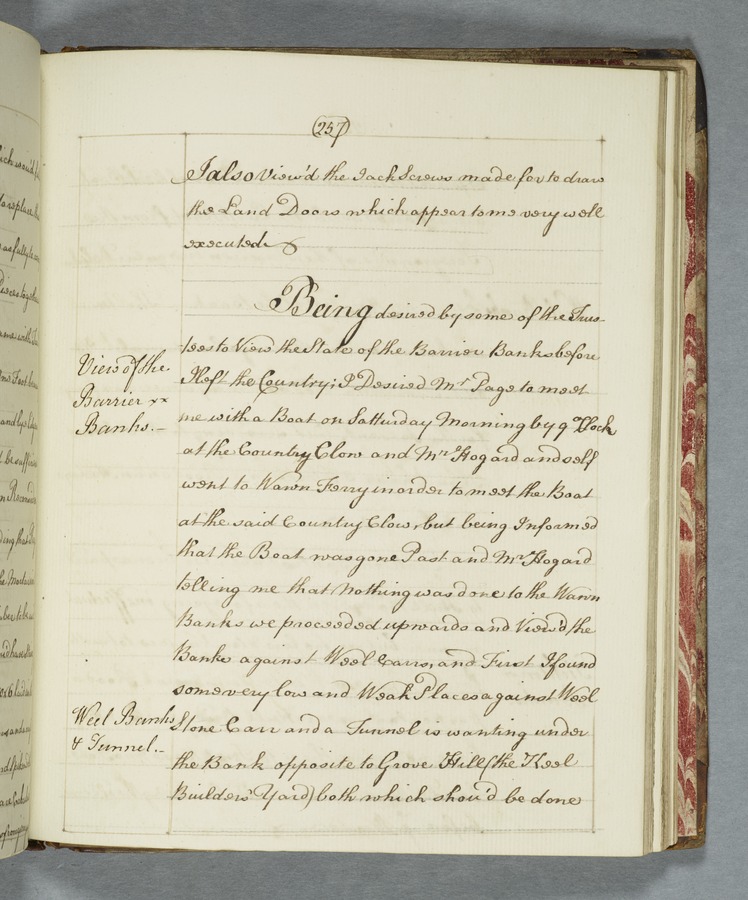 257
I also View'd the Jack Screws made for to draw
the Land Doors which appear to me very well
executed
Being desired by some of the Trus-
tees to View the State of the Barrier Banks before
I left the Country; I Desired Mr Page to meet
me with a Boat on Satturday Morning by 9 'Clock
at the Country Clow and Mr Hogard and self
went to Wawn Ferry in order to meet the Boat
at the said Country Clow, but being Informed
that the Boat was gone Past and Mr Hogard
telling me that Nothing was done to the Wawn
Banks we proceeded upwards and View'd the
Banks against Weel Carrs, and First I found
some very low and Weak Places against Weel
Stone Carr and a Tunnel is wanting under
the Bank opposite to Grove Hill (the Keel
Builders Yard) both which shou'd be done
View of the
Barrier xx
Banks.-
Weel Banks
& Tunnel.-